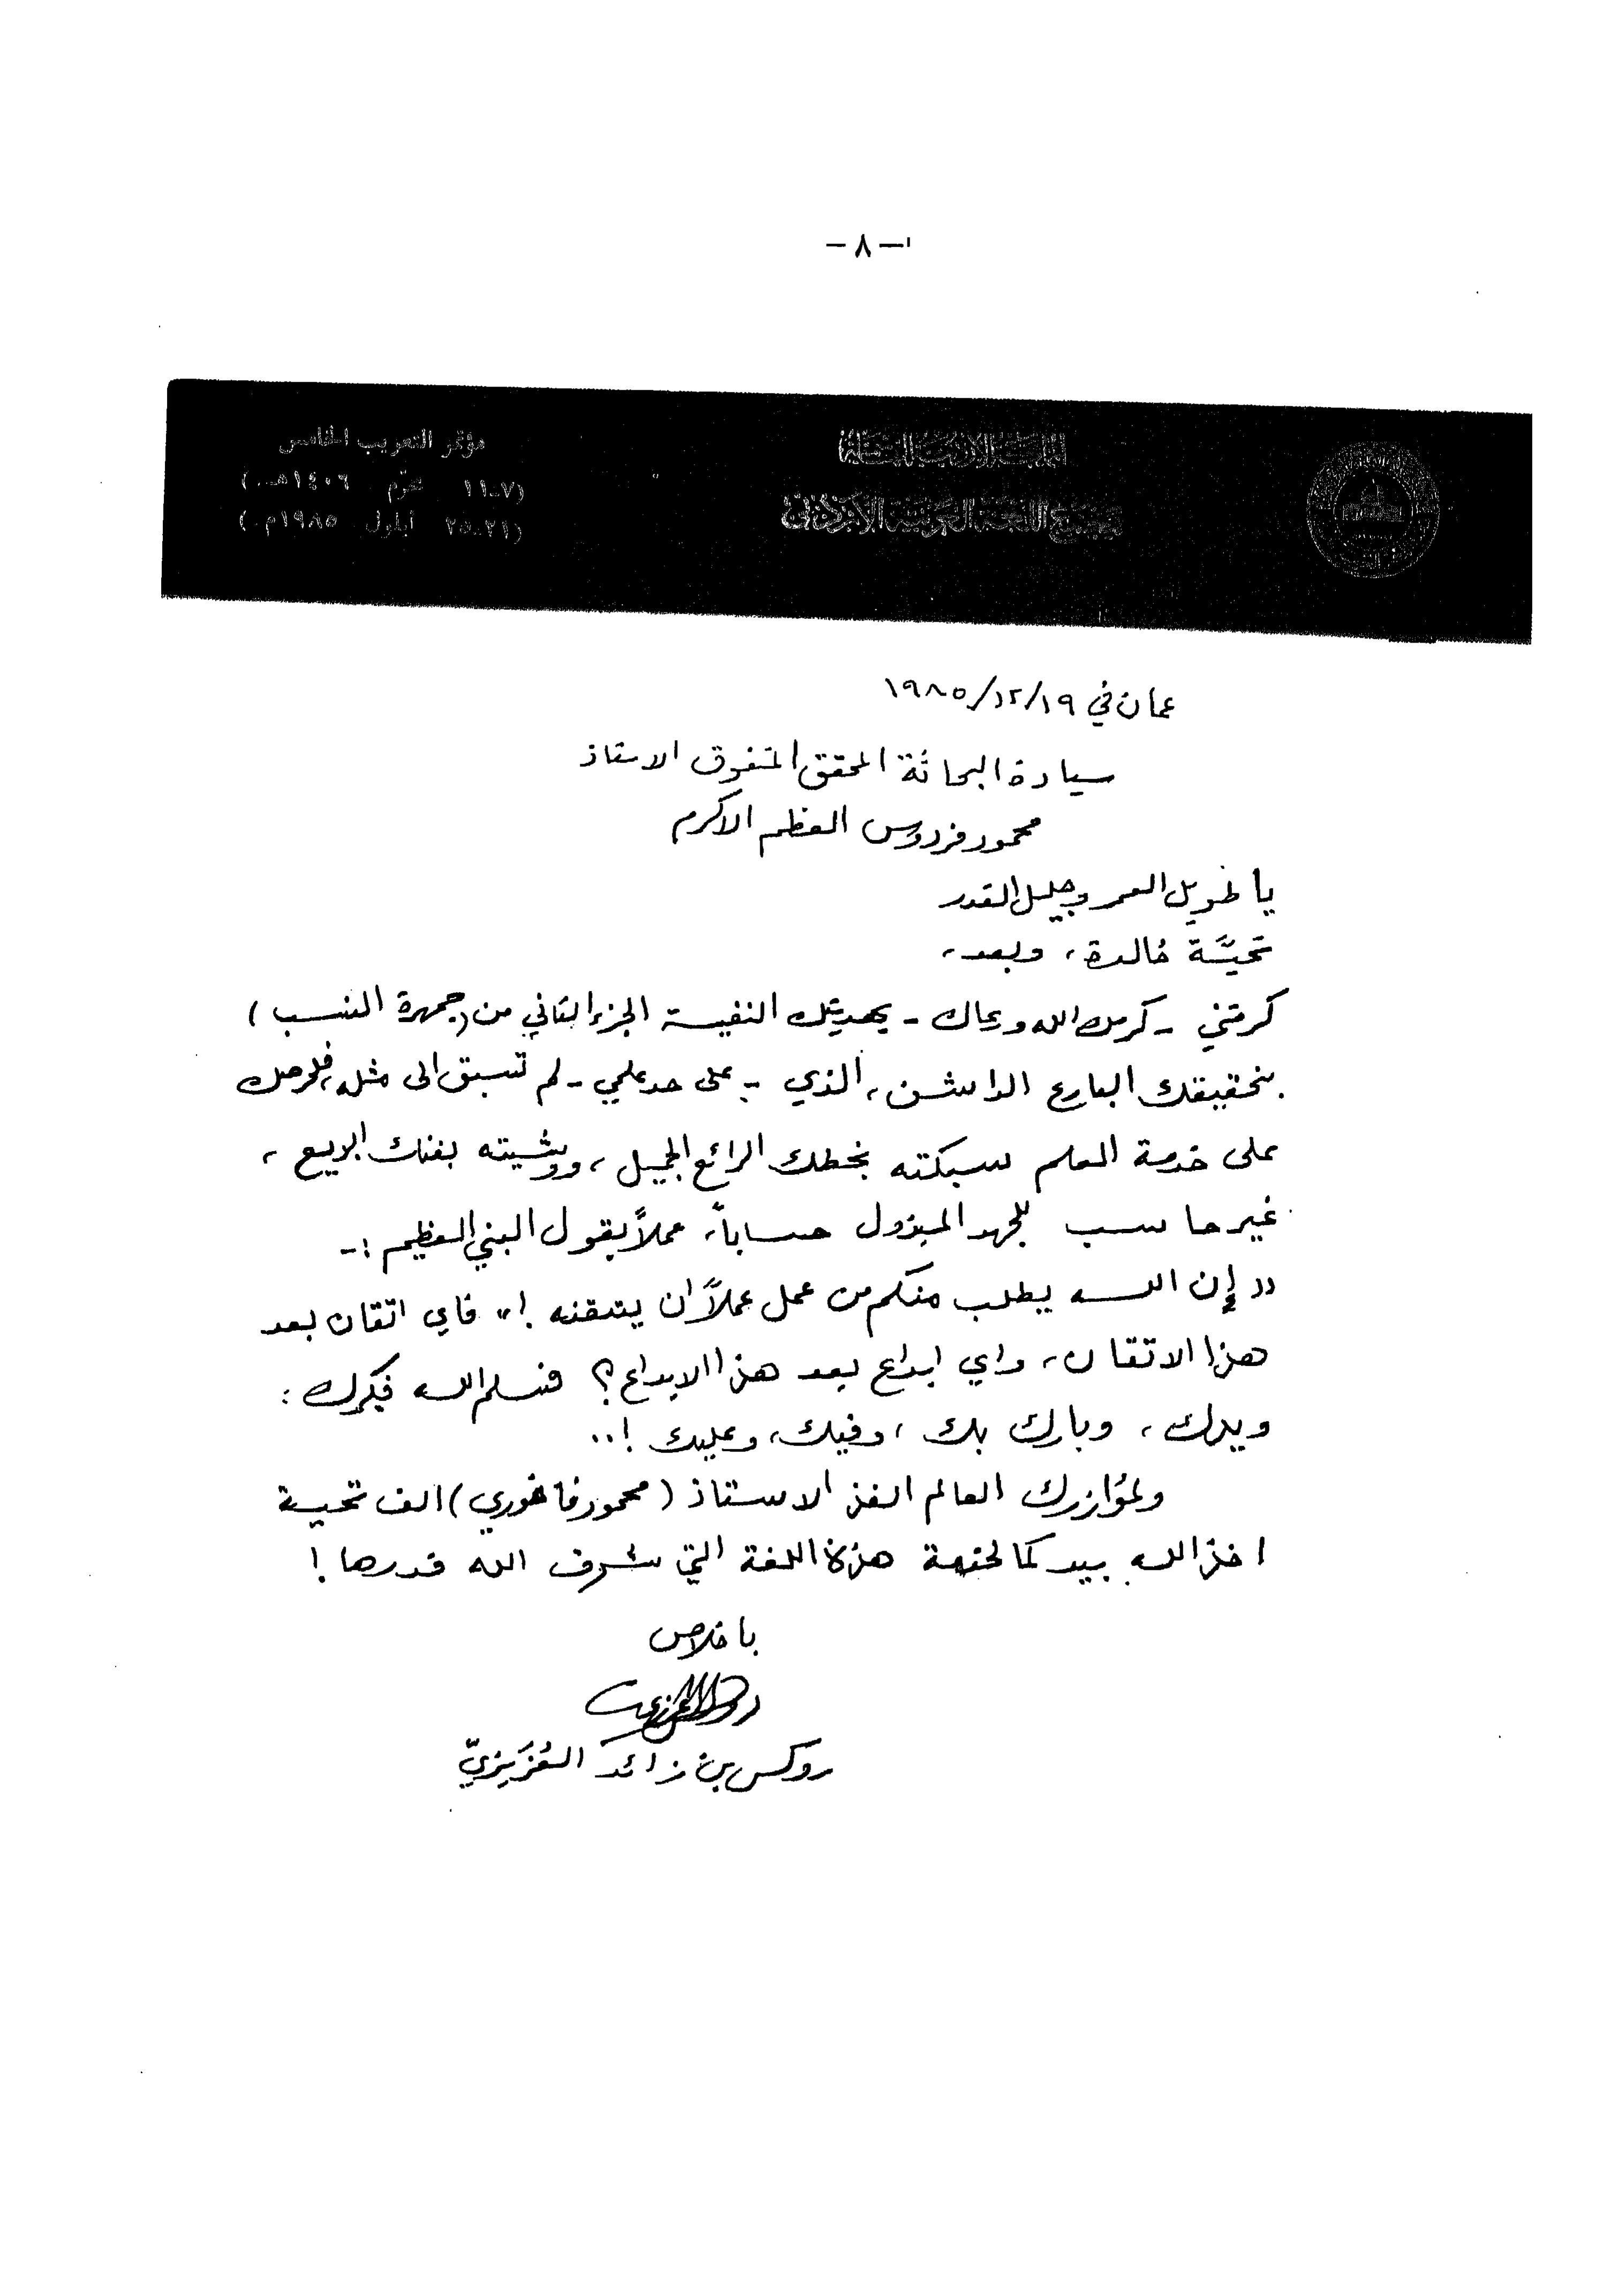 - ٨ -
المملكة الأردنية الهاشمية
مجمع اللغة العربية الأردني
مؤتمر التعريب الخامس
(٧-١١ محرم ١٤٠٦هـ.)
(٢١-٢٥ أيلول ١٩٨٥م.)
عمان في ١٩/١٢/١٩٨٥
سيادة البحاثة المحقق المتفوق الاستاذ
محمود فردوس العظم الاكرم
يا طويل العمر وجليل القدر
تحيَّة خالدة، وبعد،
كرمتني - كرمك الله ورعاك - بهديتك النفيسة الجزء الثاني من (جمهرة النسب)
بتحقيقك البارع الراشن، الذي - على حد علمي - لم تسبق الى مثله، فلحرصك
على خدمة العلم سبكته بخطك الرائع الجميل، ووشيته بفنك البديع،
غير حاسب للجهد المبذول حساباً، عملاً بقول النبي العظيم :-
"إن الله يطلب منكم من عمل عملاً ان يتقنه !" فاي اتقان بعد
هذا الاتقان، واي ابداع بعد هذا الابداع؟ فسلم الله فكرك :
ويدك، وبارك بك، وفيك، وعليك !..
ولمؤازرك العالم الفذ الاستاذ (محمود فاخوري) الف تحية
اخذ الله بيدكما لخدمة هذه اللغة التي شرف الله قدرها !
باخلاص
روكس بن زائد العُزَيزيّ